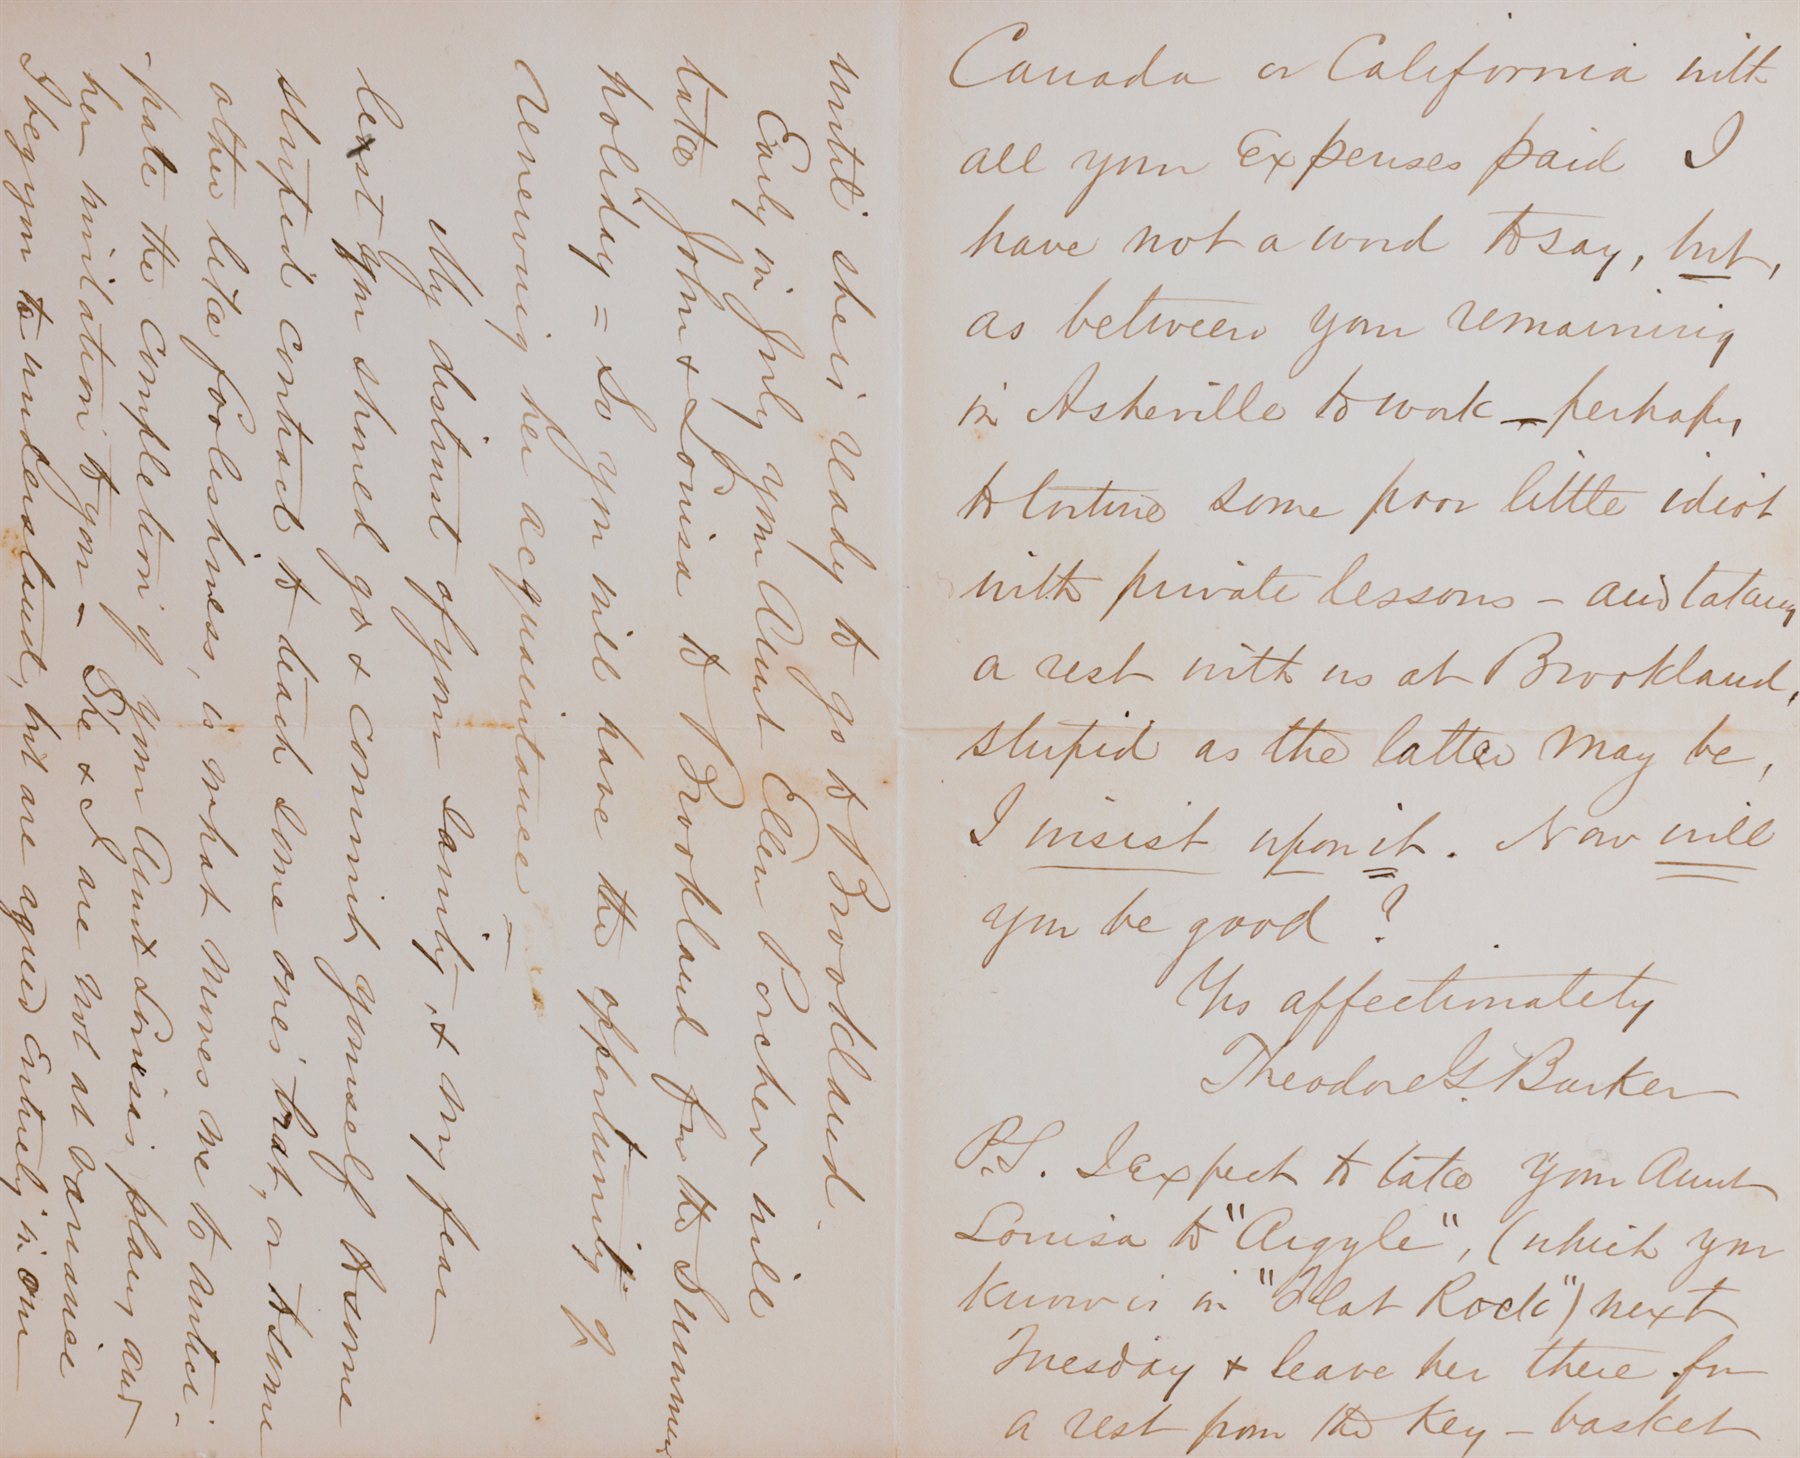 Canada or California with
all your Expenses paid I
have not a word to say, but,
as between your remaining
in Asheville to work — perhaps,
to torture some poor little idiot
with private lessons — and taking
a rest with us at Brookland,
stupid as the latter may be,
I insist upon it. Now will
you be good?
Yrs affectionately
Theodore G. Barker
P.S. I expect to take your Aunt
Louisa to "Argyle", (which you
know is in "Flat Rock") next
Tuesday & leave her there for
a rest from the Key-basket
until she is ready to go to Brookland.
Early in July your Aunt Ellen Porcher will
take John & Louisa to Brookland for the Summer
holiday = So you will have the opportunity of
renewing her acquaintance —
My distrust of your sanity, & my fear
lest you should go & commit yourself to some
stupid contract to teach some one's brat, or to some
other like foolishness, is what moves me to antici-
-pate the completion of your Aunt Louisa's plans, and
her invitation to you — She & I are not at variance
I beg you to understand, but are agreed Entirely in our